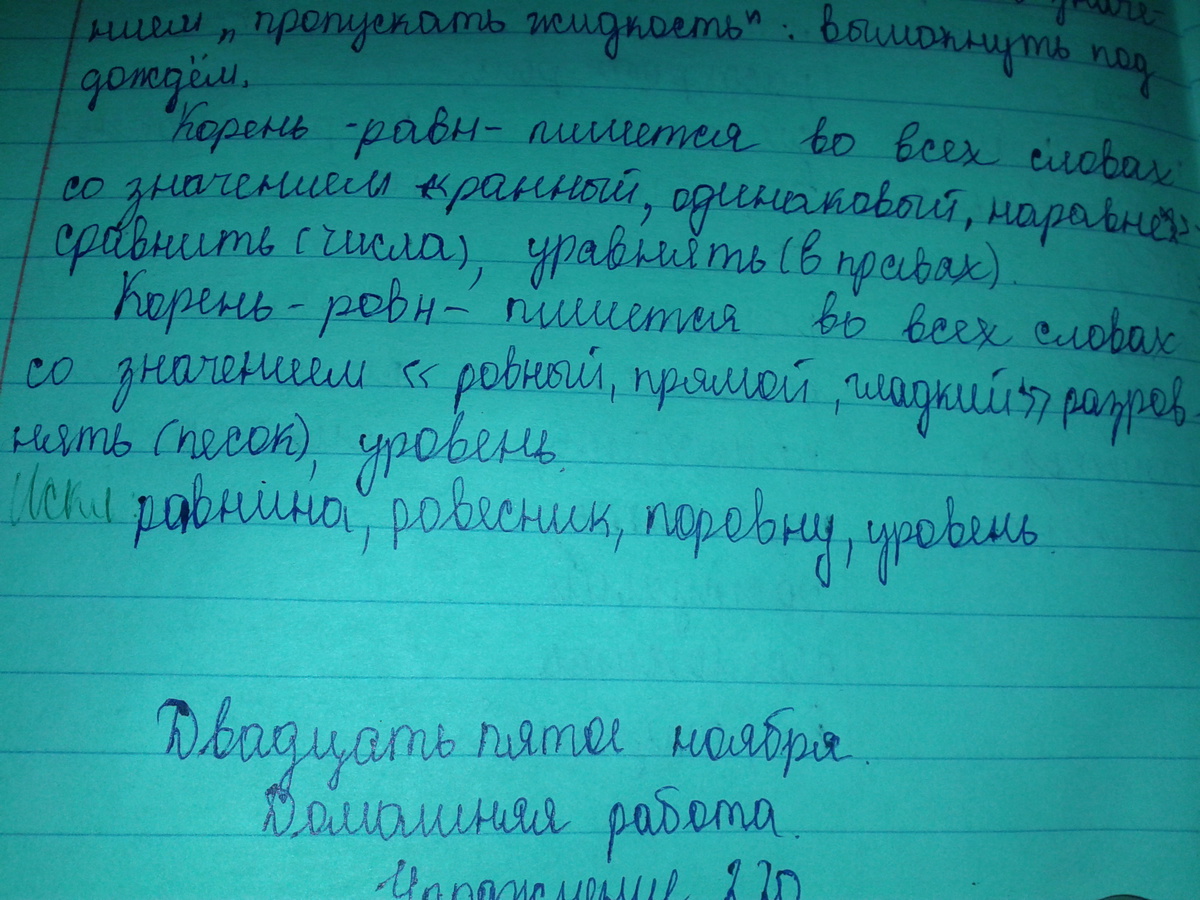 значе-
нием „пропускать жидкость": вымокнуть под
дождём.
Корень -равн- пишется во всех словах
со значением «ранный, одинаковый, наравне»
сравнить (числа), уравнять (в правах).
Корень -ровн- пишется во всех словах
со значением «ровный, прямой, гладкий» разров
нять (песок), уровень.
Искл равнина, ровесник, поровну, уровень
Двадцать пятое ноября.
Домашняя работа.
Упражнение 220